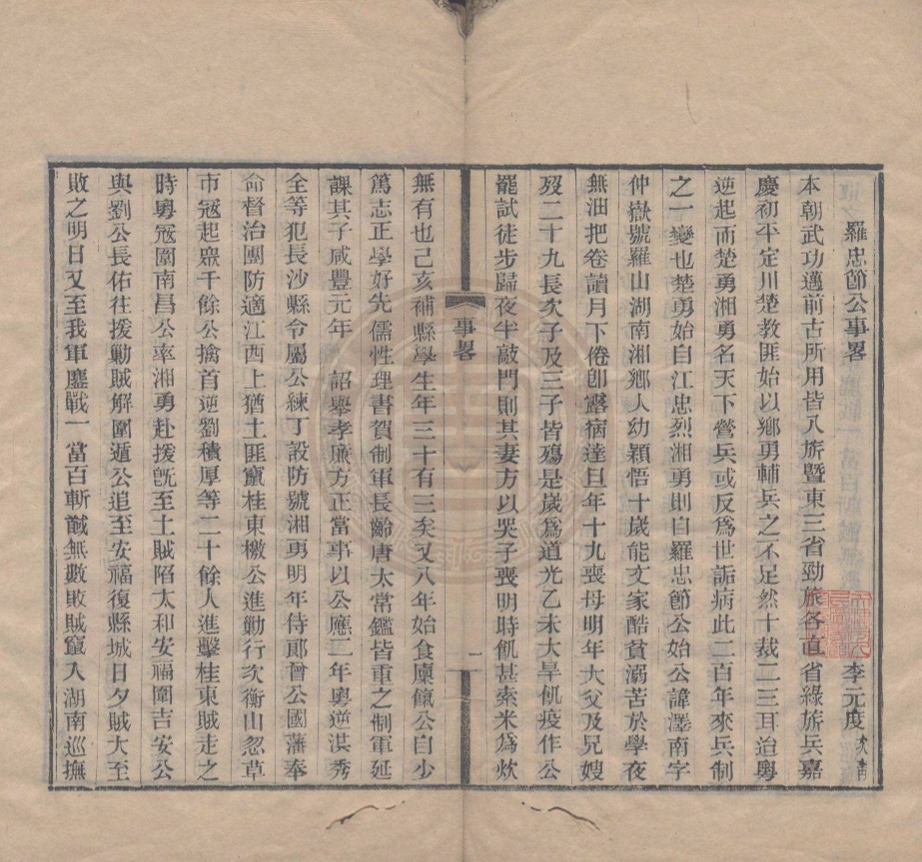 羅忠節公事畧
李元度次青
本朝武功邁前古所用皆八旂曁東三省勁旅各直省綠旂兵嘉
慶初平定川楚教匪始以鄉勇輔兵之不足然十裁二三耳迨粵
逆起而楚勇湘勇名天下營兵或反爲世詬病此二百年來兵制
之一變也楚勇始自江忠烈湘勇則自羅忠節公始公諱澤南字
仲嶽號羅山湖南湘鄉人幼穎悟十歲能文家酷貧溺苦於學夜
無油把卷讀月下倦卽露宿達旦年十九喪母明年大父及兄嫂
歿二十九長次子及三子皆殤是歲爲道光乙未大旱飢疫作公
罷試徒步歸夜半敲門則其妻方以哭子喪明時飢甚索米爲炊
事畧
一
無有也己亥補縣學生年三十有三矣又八年始食廩餼公自少
篤志正學好先儒性理書賀制軍長齡唐太常鑑皆重之制軍延
課其子咸豐元年　詔舉孝廉方正當事以公應二年粵逆洪秀
全等犯長沙縣令屬公練丁設防號湘勇明年侍郞曾公國藩奉
命督治團防適江西上猶土匪竄桂東檄公進勦行次衡山忽草
市冦起眾千餘公擒首逆劉積厚等二十餘人進擊桂東賊走之
時粵冦圍南昌公率湘勇赴援旣至土賊陷太和安福圍吉安公
與劉公長佑往援勦賊解圍遁公追至安福復縣城日夕賊大至
敗之明日又至我軍鏖戰一當百斬馘無數敗賊竄入湖南巡撫